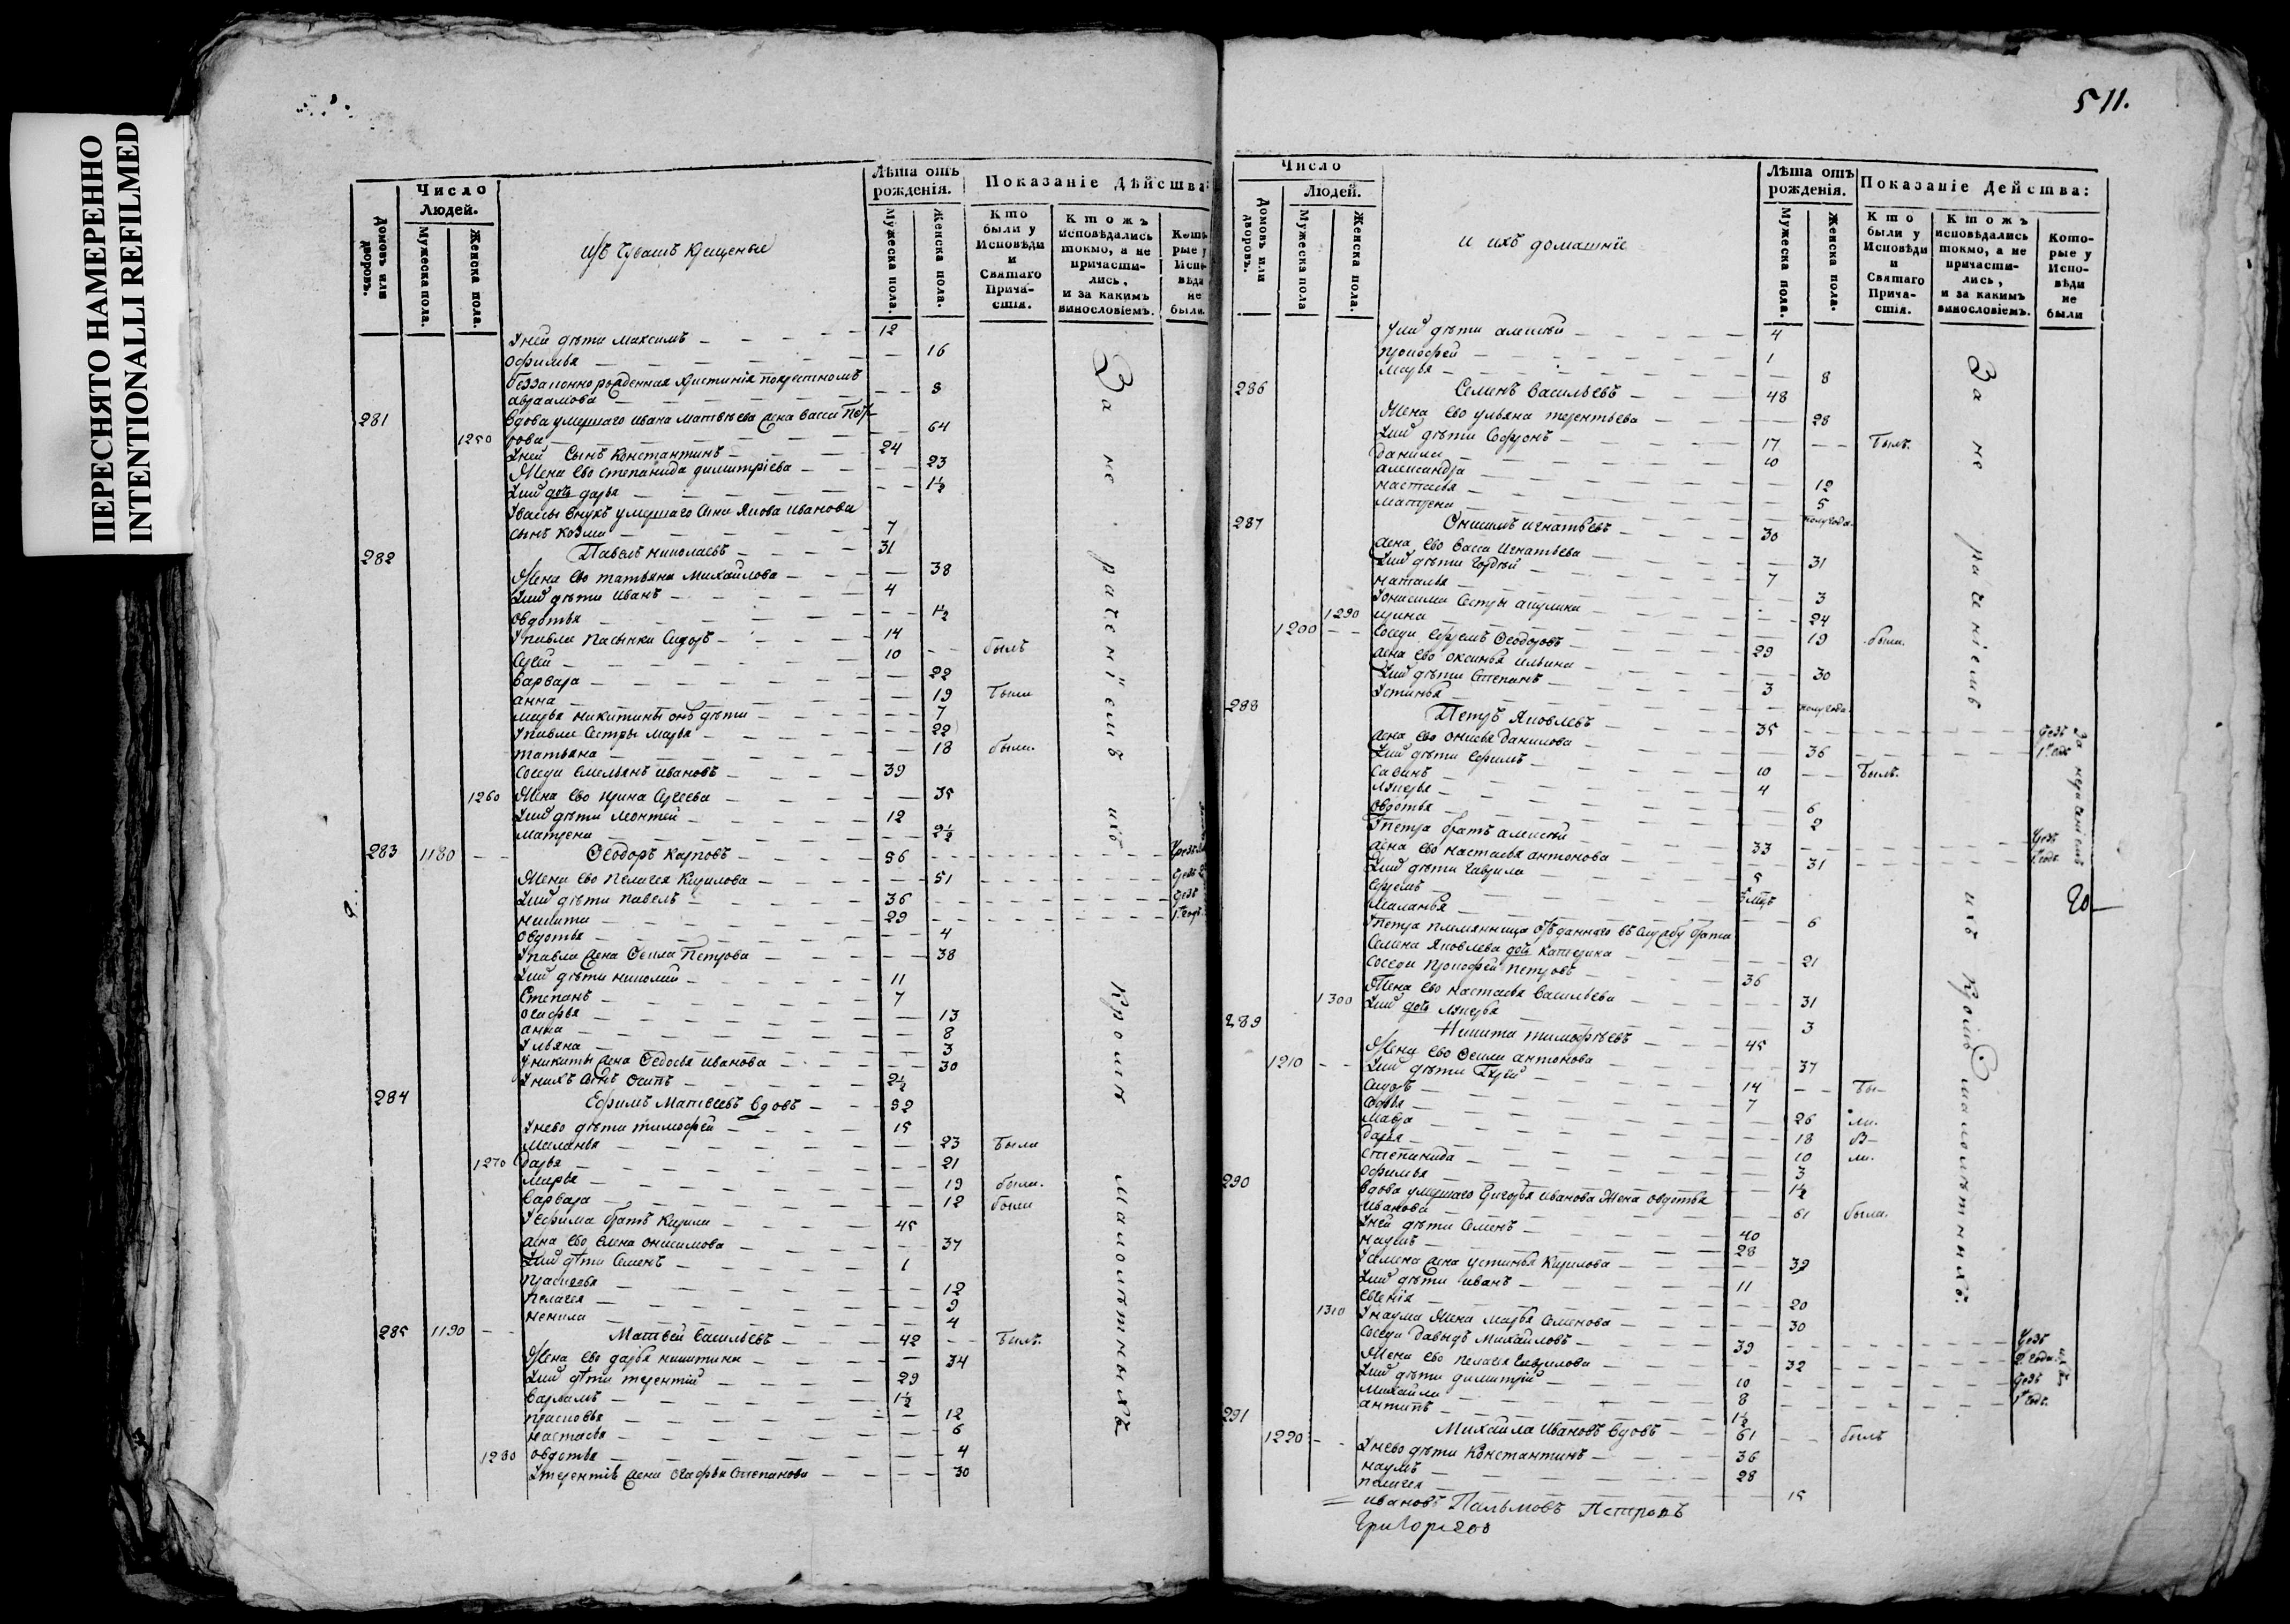 ПЕРЕСНЯТО НАМЕРЕННО
INTENTIONALLI REFILMED
Число
Людей.
Домовъ или дворовъ.
Мужеска пола.
Женска пола.
изъ Чувашъ крещеные
Лѣта отъ рожденія.
Мужеска пола.
Женска пола.
Показаніе Дѣйства:
Кто были у Исповѣди и Святаго Причастія.
Ктожъ исповѣдались токмо, а не причастились, и за какимъ винословіемъ.
Которые у Исповѣди не были.
У ней дѣти Максимъ 12
Офимья 16
Беззаконнорожденная Христинія по крестномъ
Авраамова 8
281 Вдова умершаго Ивана Матвѣева жена Васса Пет-
1250 рова 64
У ней сынъ Константинъ 24
Жена ево Степанида Димитріева 23
У них дочь Дарья 1½
У Вассы внукъ умершаго сына Якова Иванова
сынъ Козма 7
282 Павелъ Николаевъ 31
Жена ево Татьяна Михайлова 38
У них дѣти Иванъ 4
Овдотья 1½
У Павла пасынки Сидоръ 14 былъ
Сергей 10
Варвара 22
Анна 19 были
Марья Никитины онѣ дѣти 7
У Павла сестры Марья 22
Татьяна 18 были.
Соседи Емельянъ Ивановъ 39
1260 Жена ево Ирина Сергеева 35
У них дѣти Леонтей 12
Матрена 2½
283 1180 Ѳеодоръ Карповъ 56
Жена ево Пелагея Кирилова 51
У них дѣти Павелъ 36
Никита 29
Овдотья 4
У Павла жена Ѳекла Петрова 38
У них дѣти Николай 11
Степанъ 7
Огафья 13
Анна 8
Ульяна 3
У Никиты жена Ѳедосья Иванова 30
У нихъ сынъ Осипъ 2½
284 Ефимъ Матвеевъ вдовъ 52
У нево дѣти Тимофей 15
Маланья 23 были
1270 Дарья 21
Марья 19 были.
Варвара 12 были
У Ефима братъ Кирила 45
жена ево Елена Онисимова 37
У них дѣти Семенъ 1
Прасковья 12
Пелагея 9
Ненила 4
285 1190 Матвей Васильевъ 42 былъ.
Жена ево Дарья Никитина 34
У них дѣти Терентій 29
Варламъ 1½
Прасковья 12
Настасья 6
1280 Овдотья 4
У Терентія жена Огафья Степанова 30
За не раченіемъ ихъ кромѣ малолѣтныхъ
511.
Число
Людей.
Домовъ или дворовъ.
Мужеска пола
Женска пола.
и ихъ домашніе
Лѣта отъ рожденія.
Мужеска пола.
Женска пола.
Показаніе Действа:
Кто были у Исповѣди и Святаго Причастія.
Ктожъ исповѣдались токмо, а не причастились, и за какимъ винословіемъ.
Которые у Исповѣди не были
У них дѣти Алексѣй 4
Прокофей 1
Марья 8
286 Семенъ Васильевъ 48
Жена ево Ульяна Терентьева 28
У них дѣти Софронъ 17 былъ.
Данила 10
Александра 12
Настасья 5
Матрена полугода.
287 Онисимъ Игнатьевъ 30
жена ево Васса Игнатьева 31
У них дѣти Гордѣй 7
Наталья 3
У Онисима сестры Акулина 24
1290 Ирина 19 были.
1200 Соседи Ефремъ Ѳеодоровъ 29
жена ево Оксинья Ильина 30
У них дѣти Степанъ 3
Устинья полугода.
288 Петръ Яковлевъ 35
жена ево Онисья Данилова 36
У них дѣти Ефимъ 10 былъ.
Савинъ 4
Лукерья 6
Овдотья 2
У Петра братъ Алексѣй 33
жена ево Настасья Антонова 31
У них дѣти Гаврила 5
Ефремъ
Маланья 6
У Петра племянница отданнаго въ службу брата
Семена Яковлева дочь Катерина 21
Соседи Прокофей Петровъ 36
Жена ево Настасья Васильева 31
1300 У них дочь Лукерья 3
289 Никита Тимофѣевъ 45
Жена ево Ѳекла Антонова 37
1210 У них дѣти Гурій 14 бы-
Сидоръ 7
Софья 26 ли.
Мавра 18 бы-
Дарья 10 ли.
Степанида 3
Офимья 1½
290 Вдова умершаго Григорья Иванова жена Овдотья
Иванова 61 была.
У ней дѣти Семенъ 40
Наумъ 28
У Семена жена Устинья Кирилова 39
У них дѣти Иванъ 11
Евгенія 20
1310 У Наума жена Марья Семенова 30
Соседи Давыдъ Михайловъ 39
Жена ево Пелагея Гаврилова 32
У них дѣти Димитрій 10
Михайла 8
Антипъ 1½
291 Михайла Ивановъ вдовъ 61 былъ
1220 У нево дѣти Константинъ 36
Наумъ 28
Пелагея 15
За не раченіемъ ихъ кромѣ малолѣтнихъ.
Ивановъ Пальмовъ Петровъ